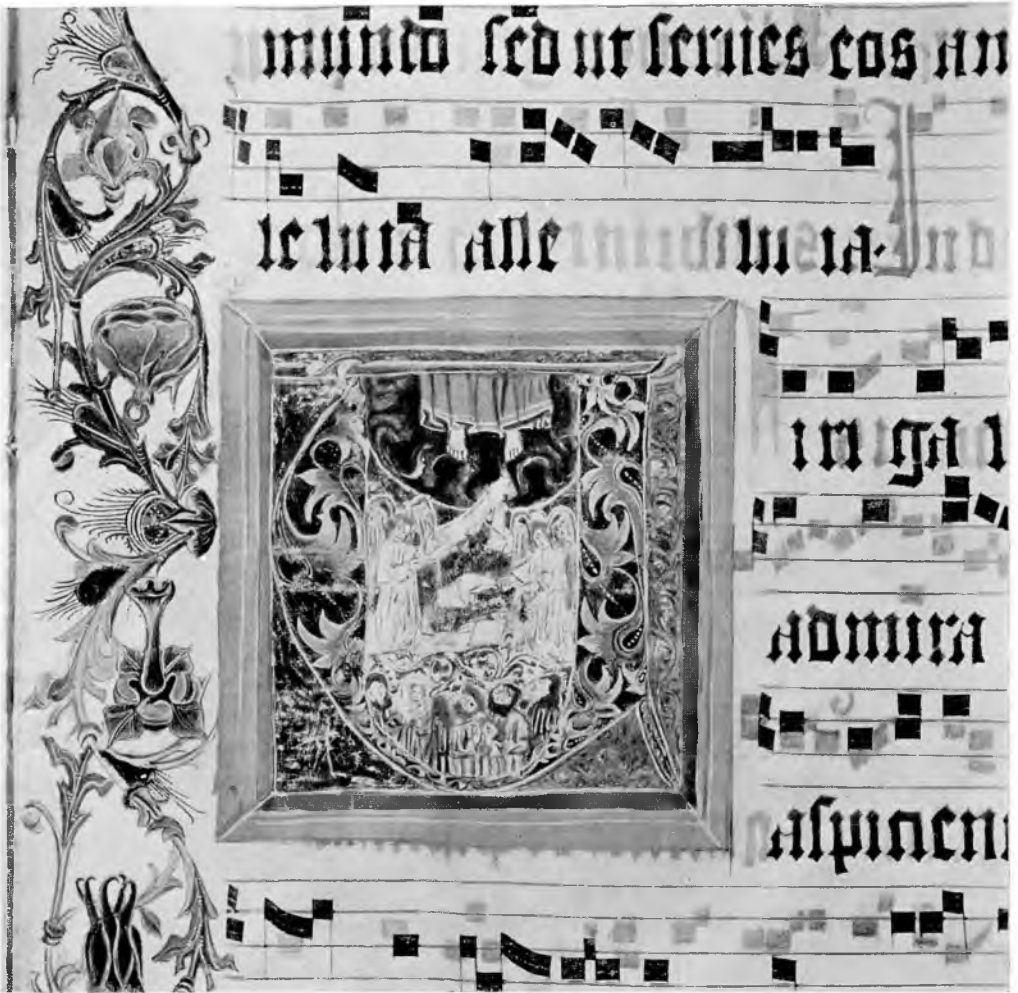 mundo ſed ut ſerues eos an
le luia alle lu ia.
iri ga l
admira
aſpicien